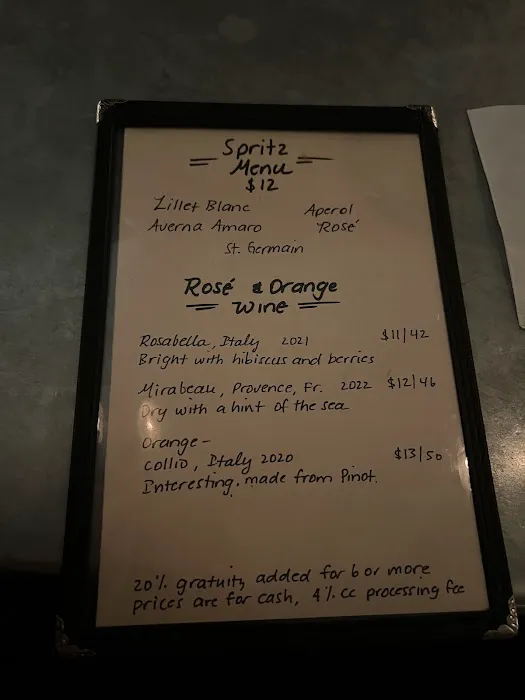 Spritz
Menu
$12
Lillet Blanc Aperol
Averna Amaro Rosé
St. Germain
Rosé & Orange
Wine
Rosabella, Italy 2021 $11/42
Bright with hibiscus and berries
Mirabeau, Provence, Fr. 2022 $12/46
Dry with a hint of the sea
Orange-
Collio, Italy 2020 $13/50
Interesting. made from Pinot.
20% gratuity added for 6 or more
prices are for cash, 4% cc processing fee